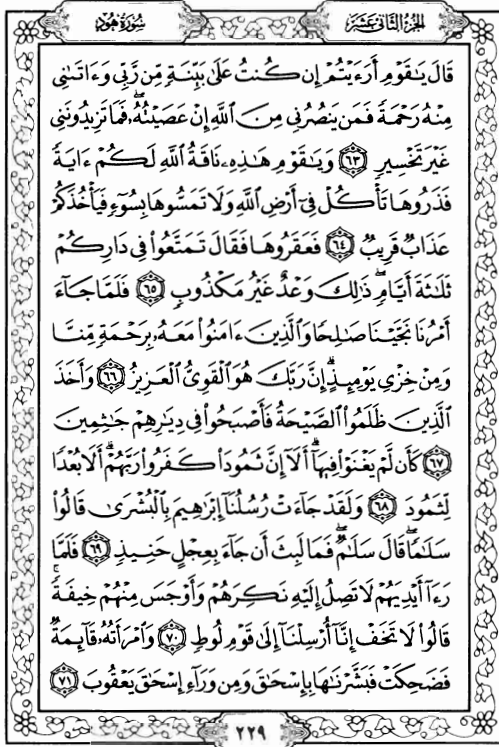 الجزء الثاني عشر
سورة هود
قَالَ يَٰقَوْمِ أَرَءَيْتُمْ إِن كُنتُ عَلَىٰ بَيِّنَةٍ مِّن رَّبِّي وَءَاتَىٰنِي
مِنْهُ رَحْمَةً فَمَن يَنصُرُنِي مِنَ ٱللَّهِ إِنْ عَصَيْتُهُۥۖ فَمَا تَزِيدُونَنِي
غَيْرَ تَخْسِيرٍ ٦٣ وَيَٰقَوْمِ هَٰذِهِۦ نَاقَةُ ٱللَّهِ لَكُمْ ءَايَةً
فَذَرُوهَا تَأْكُلْ فِيٓ أَرْضِ ٱللَّهِ وَلَا تَمَسُّوهَا بِسُوٓءٍ فَيَأْخُذَكُمْ
عَذَابٌ قَرِيبٌ ٦٤ فَعَقَرُوهَا فَقَالَ تَمَتَّعُوا۟ فِي دَارِكُمْ
ثَلَٰثَةَ أَيَّامٍۖ ذَٰلِكَ وَعْدٌ غَيْرُ مَكْذُوبٍ ٦٥ فَلَمَّا جَآءَ
أَمْرُنَا نَجَّيْنَا صَٰلِحًا وَٱلَّذِينَ ءَامَنُوا۟ مَعَهُۥ بِرَحْمَةٍ مِّنَّا
وَمِنْ خِزْيِ يَوْمِئِذٍۗ إِنَّ رَبَّكَ هُوَ ٱلْقَوِيُّ ٱلْعَزِيزُ ٦٦ وَأَخَذَ
ٱلَّذِينَ ظَلَمُوا۟ ٱلصَّيْحَةُ فَأَصْبَحُوا۟ فِي دِيَٰرِهِمْ جَٰثِمِينَ
٦٧ كَأَن لَّمْ يَغْنَوْا۟ فِيهَآۗ أَلَآ إِنَّ ثَمُودَا۟ كَفَرُوا۟ رَبَّهُمْۗ أَلَا بُعْدًا
لِّثَمُودَ ٦٨ وَلَقَدْ جَآءَتْ رُسُلُنَآ إِبْرَٰهِيمَ بِٱلْبُشْرَىٰ قَالُوا۟
سَلَٰمًاۖ قَالَ سَلَٰمٌۖ فَمَا لَبِثَ أَن جَآءَ بِعِجْلٍ حَنِيذٍ ٦٩ فَلَمَّا
رَءَآ أَيْدِيَهُمْ لَا تَصِلُ إِلَيْهِ نَكِرَهُمْ وَأَوْجَسَ مِنْهُمْ خِيفَةًۚ
قَالُوا۟ لَا تَخَفْ إِنَّآ أُرْسِلْنَآ إِلَىٰ قَوْمِ لُوطٍ ٧٠ وَٱمْرَأَتُهُۥ قَآئِمَةٌ
فَضَحِكَتْ فَبَشَّرْنَٰهَا بِإِسْحَٰقَ وَمِن وَرَآءِ إِسْحَٰقَ يَعْقُوبَ ٧١
٢٢٩